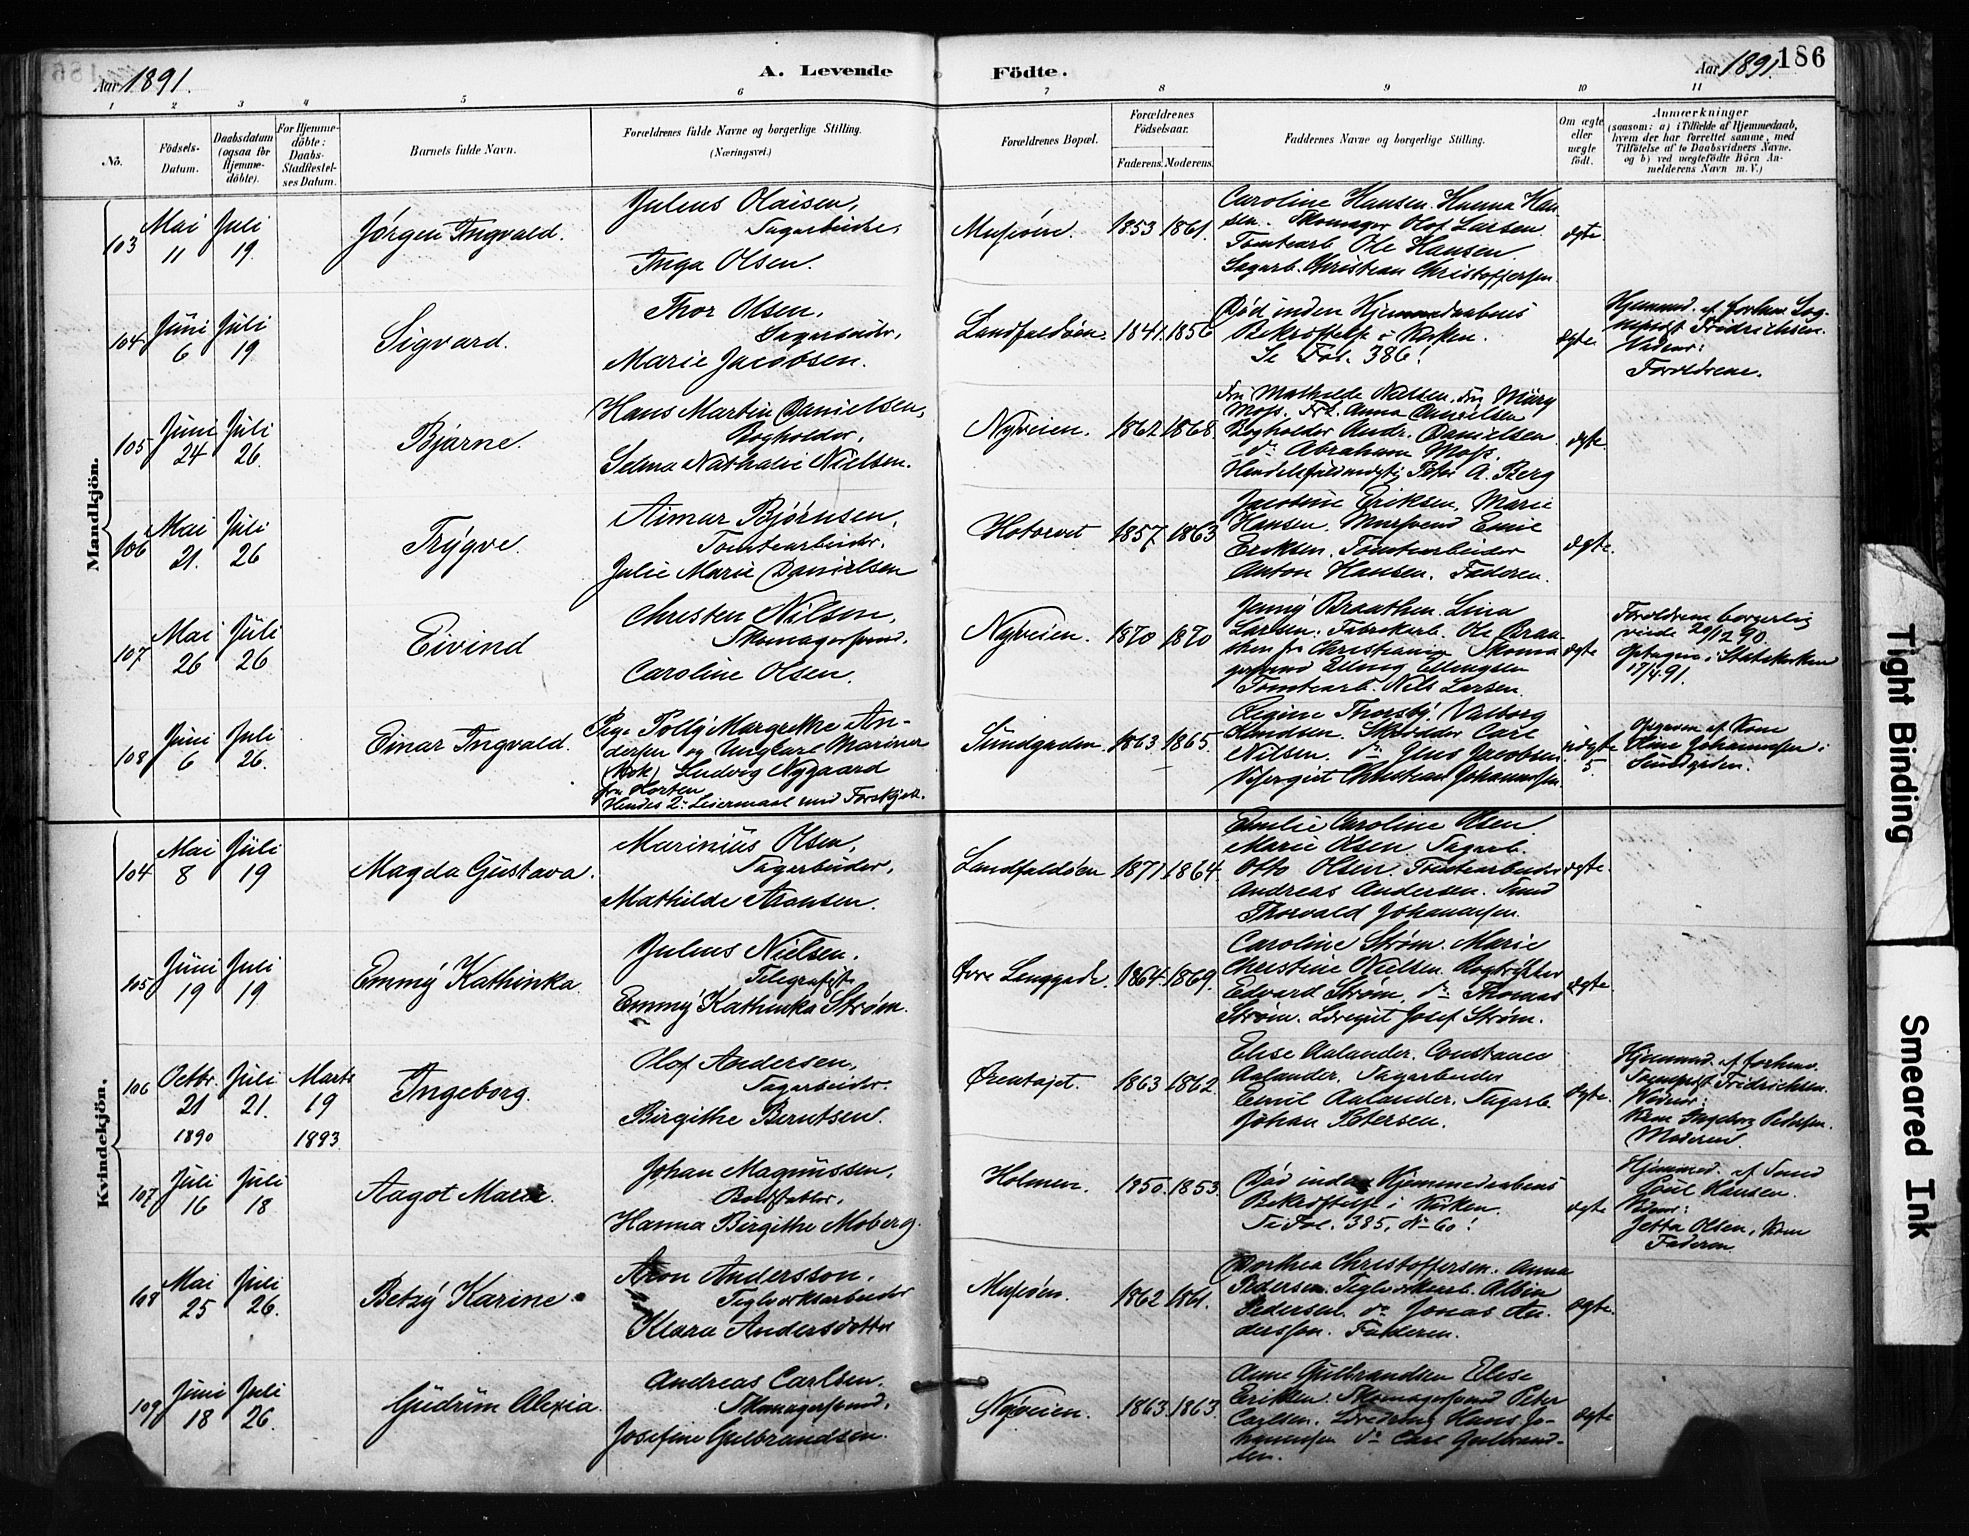 Aar 1891.
A. Levende Födte.
Aar 1891.
186
1 2 3 4 5 6 7 8 9 10 11
No.
Födsels-
Datum.
Daabsdatum
(ogsaa for
Hjemme-
döbte).
For Hjemme-
döbte:
Daabs-
Stadfæstel-
ses Datum.
Barnets fulde Navn.
Forældrenes fulde Navne og borgerlige Stilling.
(Næringsvei.)
Forældrenes Bopæl.
Forældrenes
Födselsaar.
Faderens. Moderens.
Faddernes Navne og borgerlige Stilling.
Om ægte
eller
uægte
født.
Anmærkninger
(saasom: a) i Tilfælde af Hjemmedaab,
hvem der har forrettet samme, med
Tilföielse af to Daabsvidners Navne.
og b) ved uægtefödte Börn An-
melderens Navn m. V.)
Mandkjön.
103
Mai
11
Juli
19.
Jørgen Ingvald.
Julius Olaisen,
Sagarbeider,
Inga Olsen.
1853 1861.
Caroline Hansen. Hanna Han
sen. Skomager Olof Larsen
Tomtearb. Ole Hansen
Sagarb. Christian Christoffersen
ægte.
104
Juni
6
Juli
19
Sigvard.
Thor Olsen,
Sagarbeider,
Marie Jacobsen.
Landfaldøen.
1841. 1856
Død inden Hjemmedaabens
Bekræftelse i Kirken.
Se Fol. 386!
ægte.
Hjemmed. af forhen. Sog-
nepræst Fredrichsen.
Vidner:
Forældrene.
105
Juni
24
Juli
26.
Bjarne.
Hans Martin Danielsen,
Bogholder,
Selma Nathalie Nielsen.
Nyveien.
1862 1868
Fru Mathilde Nielsen. Fru Mary
Moss. Frk. Anna Danielsen
Bogholder Andr. Danielsen.
do Abraham Moss.
Handelsfuldmægtig Peter A. Berg
ægte.
106
Mai
21.
Juli
26
Trygve.
Aimar Bjørnsen,
Tomtearbeider,
Julie Marie Danielsen
Hotorvet
1857 1863
Jacobine Eriksen, Marie
Hansen. Mursvend Emil
Eriksen. Tomtearbeider
Anton Hansen. Faderen.
ægte.
107
Mai
26
Juli
26
Eivind
Christen Nilsen,
Skomagersvend.
Caroline Olsen.
Nyveien.
1870 1870
Jenny Braathen. Lina
Larsen. Fabrikarb. Ole Braa-
then fra Christiania Skoma
gersvend Elling Ellingsen
Tomtearb. Nils Larsen.
ægte
Forældrene borgerlig
viede 20/12 90
Optagen i Statskirken
17/4 91.
108
Juni
6
Juli
26.
Einar Ingvald.
Pige Polly Margrethe An-
dersen og Ungkarl Mariner
(Kok) Ludvig Nygaard
fra Horten
Hendes 2: Leiermaal med Forskjell.
Sundgaden.
1863 1865.
Regine Thorsby. Valborg
Knudsen. Skrædder Carl
Nilsen. do Jens Jacobsen
Christian Johannessen
uægte
5.
Opgiven af Kone
Johannessen i
Sundgaden.
Kvindekjön.
104
Mai
8
Juli
19
Magda Gustava.
Marinius Olsen,
Sagarbeider,
Mathilde Aronsen.
Landfaldøen
1871 1864
Emilie Caroline Olsen
Marie Olsen. Sagarb.
Otto Olsen. Tomtearbeider
Andreas Andersen. Smed
Thorvald Johannesen.
ægte.
105
Juni
19
Juli
19
Emmy Kathinka.
Julius Nielsen.
Telegrafist.
Emmy Kathinka Strøm.
Øvre Langgade.
1864. 1869.
Caroline Strøm. Marie
Christine Nielsen Bogtrykker
Edvard Strøm. do Thomas
Strøm. Læregut Josef Strøm.
ægte.
106
Octbr.
21
1890
Juli
21.
Marts
19
1893
Ingeborg.
Olof Andersen,
Sagarbeider.
Birgithe Berntsen.
Ørentajet.
1863 1862.
Elise Aalander. Constance
Aalander. Sagarbeider
Emil Aalander. Sagarb.
Johan Petersen.
ægte.
Hjemmed. af forhen.
Sognepræst Fredrichsen.
Vidner:
Kone Ingeborg Pedersen.
Moderen.
107
Juli
16
Juli
18
Aagot Maria.
Johan Magnussen,
Hanna Birgithe Moberg.
Holmen.
1850. 1853.
Død inden Hjemmedaabens
Bekræftelse i Kirken.
Se Fol. 385, No 60!
ægte
Hjemmed. af Smed
Poul Hansen.
Vidner:
Jetta Olsen, Kone
Faderen.
108
Mai
25
Juli
26.
Betzy Karine.
Aron Andersson.
Teglværksarbeider
Klara Andersdotter
1862 1861.
Dorthea Christoffersen. Anna
Pedersen. Teglværkarb. Albin
Pedersen. do Jonas An-
dersson. Faderen.
ægte.
109
Juni
18
Juli
26.
Gudrun Alexia.
Andreas Carlsen.
Skomagersvend,
Josefine Gulbrandsen.
Nyveien.
1863. 1863.
Anne Gulbrandsen Elise
Eriksen. Skomagersvend Peter
Carlsen. Hans Jo-
hannesen do Carl Gulbrand-
sen.
ægte
Tight Binding
Smeared Ink